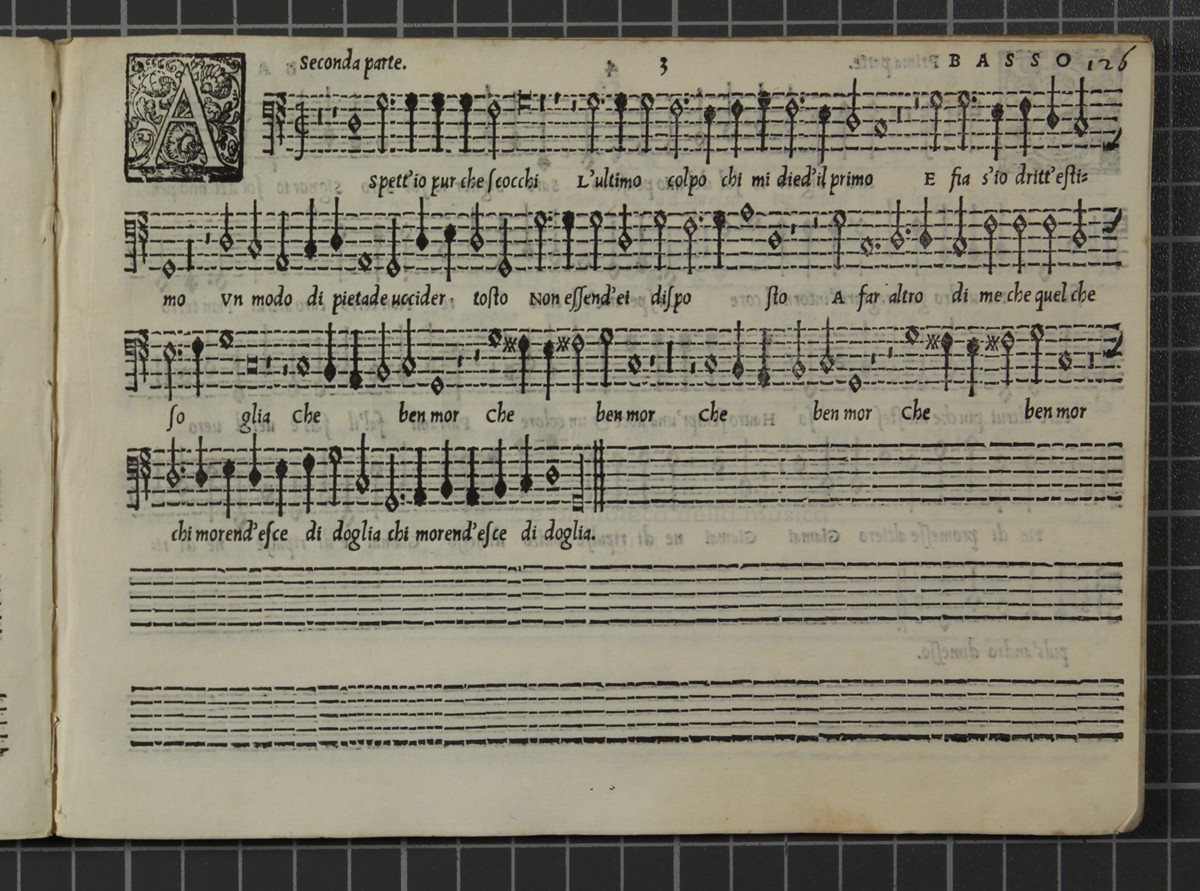 Seconda parte. 3 BASSO 126
ASpett'io pur che ſcocchi L'ultimo colpo chi mi died'il primo E fia s'io dritt'eſti=
mo Vn modo di pietade uccider tosto Non eſſend'ei diſpo sto A far altro di me che quel che
ſo glia Che ben mor Che ben mor Che ben mor Che ben mor
chi morend'eſce di doglia chi morend'eſce di doglia.